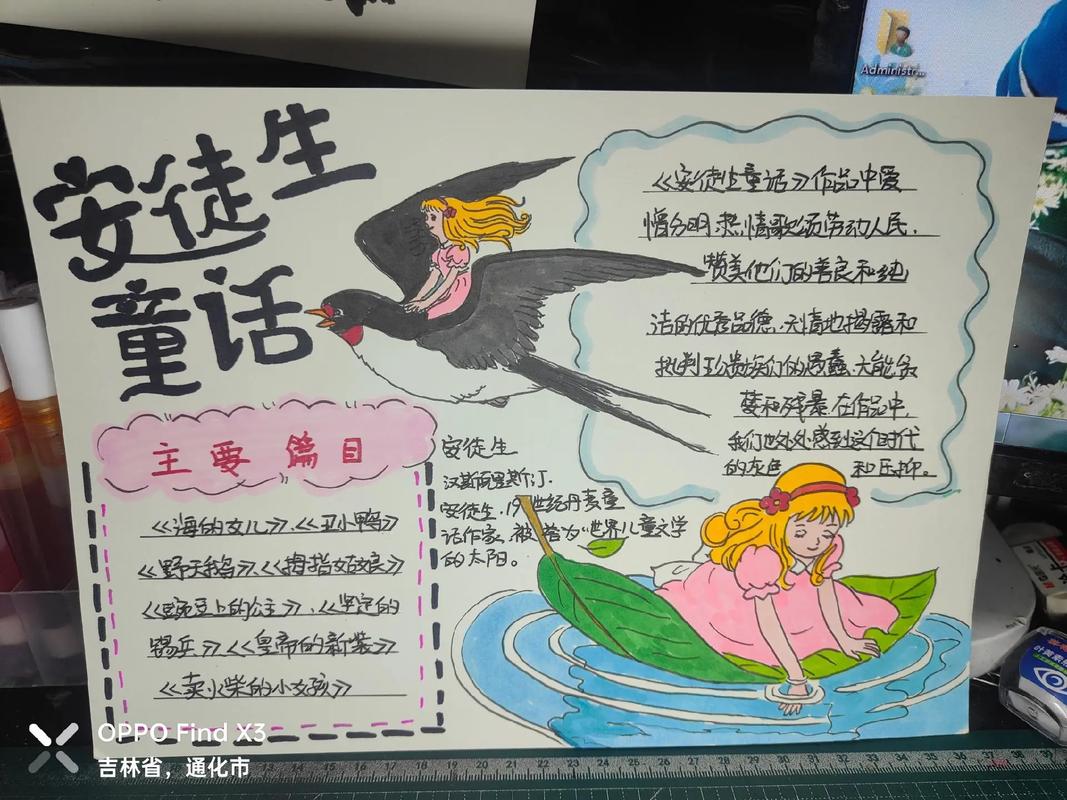 安徒生
童话
《安徒生童话》作品中爱
憎分明,热情歌颂劳动人民,
赞美他们的善良和纯
洁的优秀品德,无情地揭露和
批判王公贵族们的愚蠢、无能、贪
婪和残暴,在作品中,
我们也处处感到这个时代
的灰色 和压抑。
主要篇目
《海的女儿》、《丑小鸭》
《野天鹅》、《拇指姑娘》
《豌豆上的公主》、《坚定的
锡兵》《皇帝的新装》
《卖火柴的小女孩》
安徒生
汉斯·汀·
安徒生,19世纪丹麦童
话作家,被誉为"世界儿童文学
的太阳。
Administr...
OPPO Find X3
吉林省，通化市